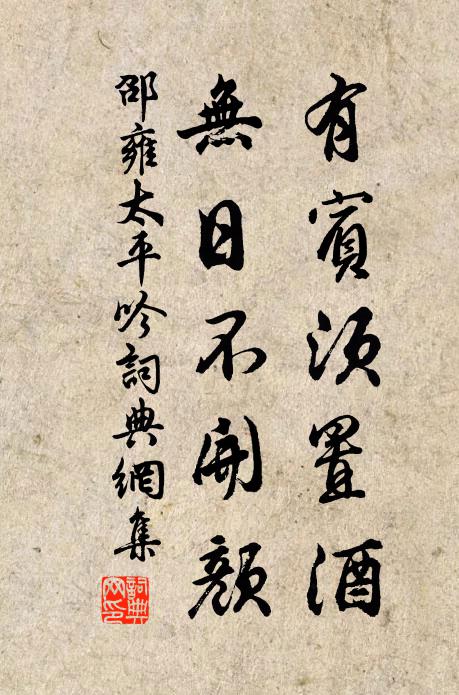 有賓須置酒
無日不開顏
邵雍太平吟詞典網集
詞典網印